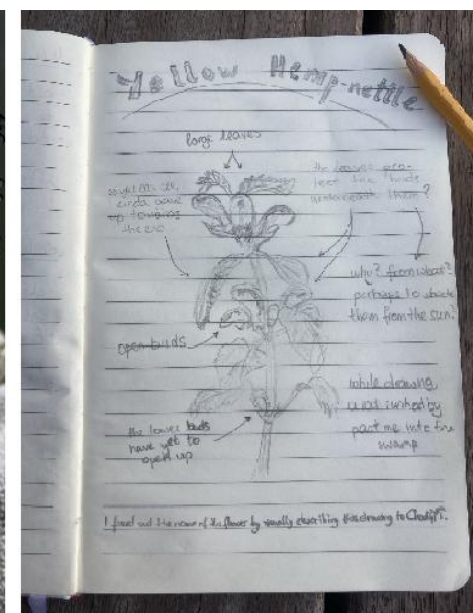 Yellow Hemp-nettle
large leaves
kinda
up towards
the end
the leaves pro-
tect the buds
underneath them?
why? from what?
perhaps to shade
them from the sun?
open buds
the lower buds
have yet to
open up
while drawing,
past me into the
swamp
I found out the name of this flower by visually describing this drawing to